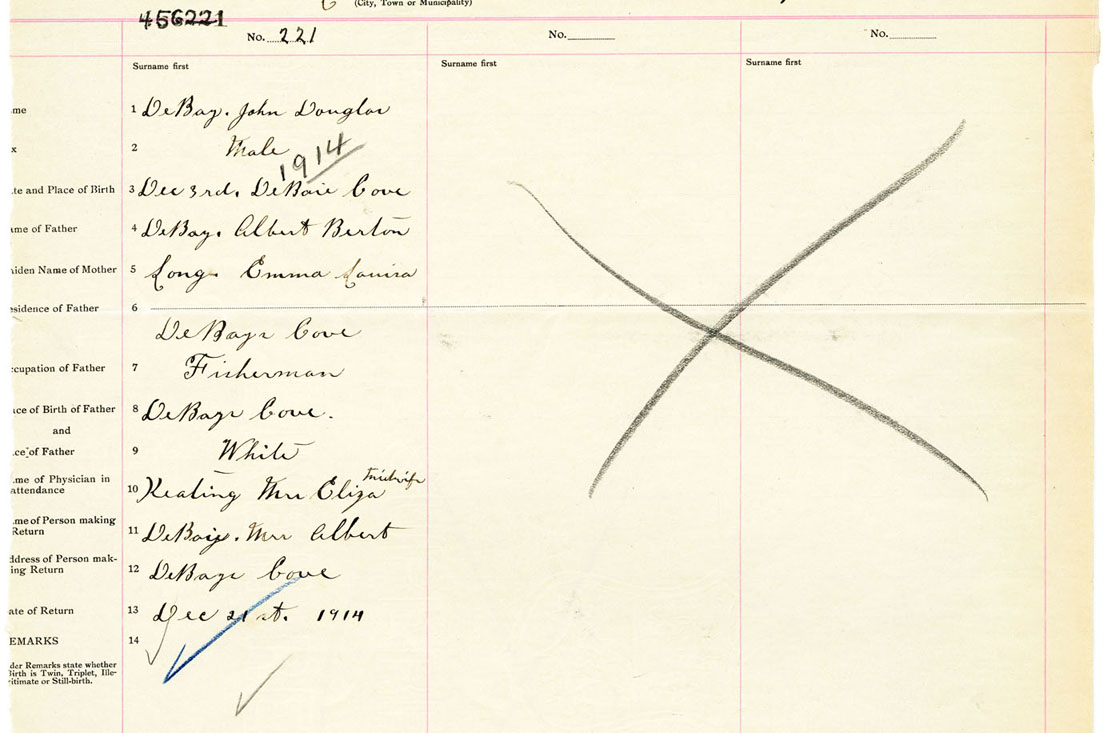 (City, Town or Municipality)
456221
No. 221 No. No.
Surname first Surname first Surname first
me 1 DeBay. John Douglas
x 2 Male
1914
te and Place of Birth 3 Dec 3rd. DeBaie Cove
me of Father 4 DeBay. Albert Berton
iden Name of Mother 5 Long. Emma Louisa
esidence of Father 6
DeBays Cove
cupation of Father 7 Fisherman
ace of Birth of Father 8 DeBays Cove.
and
ce of Father 9 White
midwife
me of Physician in
attendance 10 Keating Mrs Eliza
me of Person making
Return 11 DeBaie. Mrs Albert
ddress of Person mak-
ing Return 12 DeBays Cove
ate of Return 13 Dec 21st. 1914
EMARKS 14
der Remarks state whether
Birth is Twin, Triplet, Ille-
itimate or Still-birth.